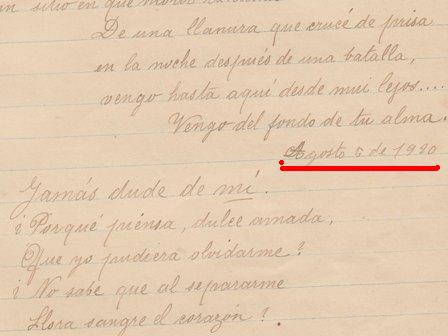 un sitio en que moras
De una llanura que crucé de prisa
en la noche después de una batalla,
vengo hasta aquí desde mui lejos....
Vengo del fondo de tu alma.
Agosto 5 de 1920
Jamás dude de mí.
¿Porqué piensa, dulce amada,
Que yo pudiera olvidarme?
¿No sabe que al separarme
Llora sangre el corazón?